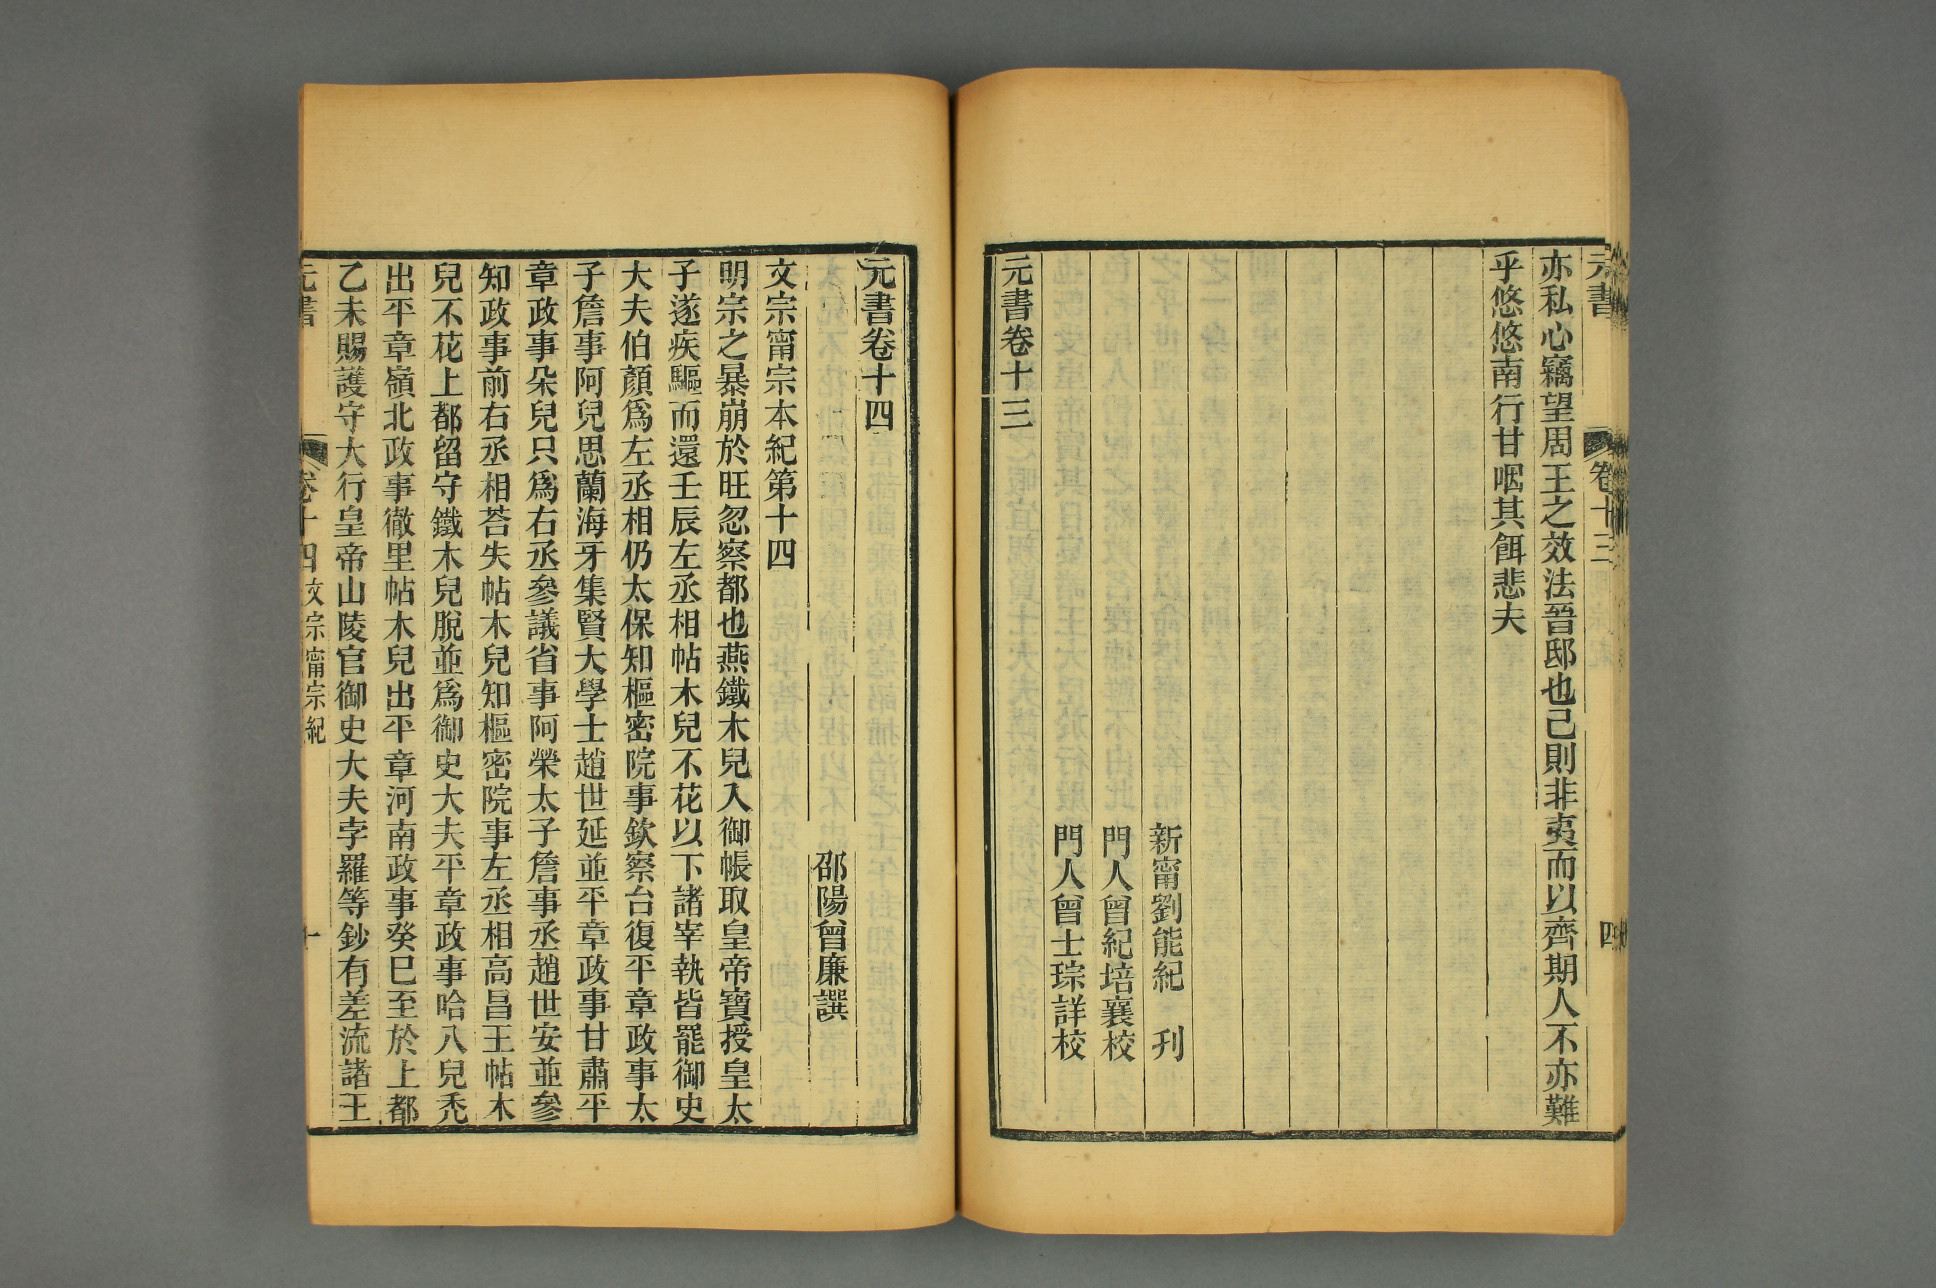 元書
卷十三
四
亦私心竊望周王之效法晉邸也己則非夷而以齊期人不亦難
乎悠悠南行甘咽其餌悲夫
新甯劉能紀 刋
門人曾紀培襄校
門人曾士琮詳校
元書卷十三
元書卷十四
邵陽曾廉譔
文宗甯宗本紀第十四
明宗之暴崩於旺忽察都也燕鐵木兒入御帳取皇帝寶授皇太
子遂疾驅而還壬辰左丞相帖木兒不花以下諸宰執皆罷御史
大夫伯顏爲左丞相仍太保知樞密院事欽察台復平章政事太
子詹事阿兒思蘭海牙集賢大學士趙世延並平章政事甘肅平
章政事朵兒只爲右丞參議省事阿榮太子詹事丞趙世安並參
知政事前右丞相荅失帖木兒知樞密院事左丞相高昌王帖木
兒不花上都留守鐵木兒脫並爲御史大夫平章政事哈八兒禿
出平章嶺北政事徹里帖木兒出平章河南政事癸巳至於上都
乙未賜護守大行皇帝山陵官御史大夫孛羅等鈔有差流諸王
元書
卷十四文宗甯宗紀
一